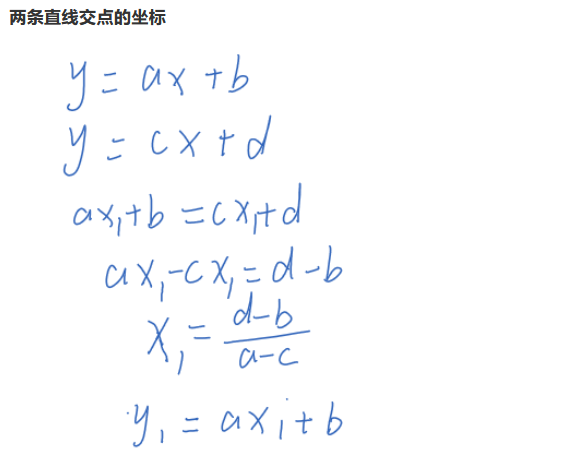 两条直线交点的坐标
y = ax + b
y = cx + d
ax₁+b = cx₁+d
ax₁-cx₁ = d-b
x₁ = \frac{d-b}{a-c}
y₁ = ax₁+b